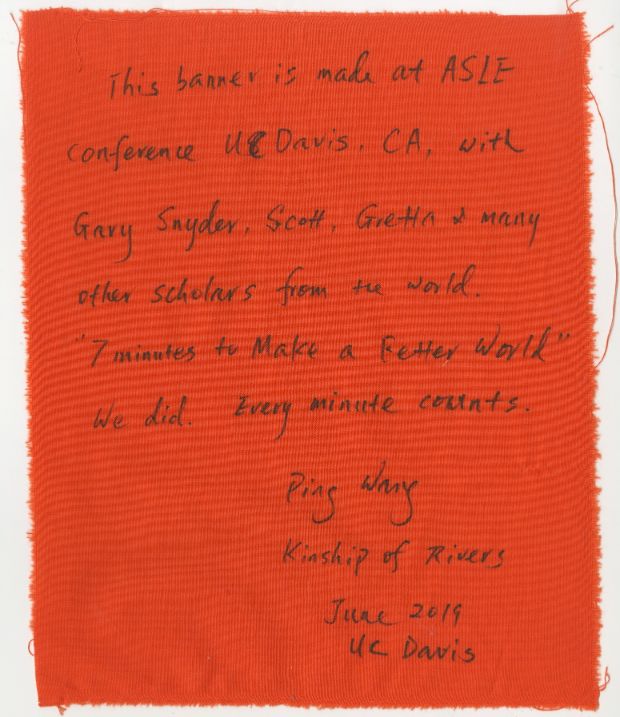 This banner is made at ASLE
conference UC Davis, CA, with
Gary Snyder, Scott, Gretta & many
other scholars from the world.
"7 minutes to Make a Better World"
We did. Every minute counts.
Ping Wang
Kinship of Rivers
June 2019
UC Davis